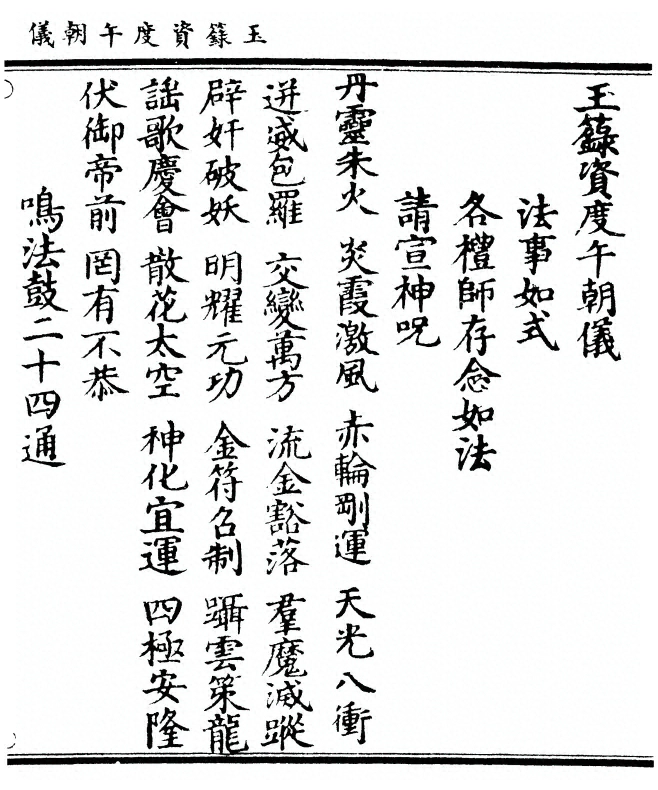 玉籙資度午朝儀
玉籙資度午朝儀
法事如式
各禮師存念如法
請宣神呪
丹靈朱火 炎霞激風 赤輪剛運 天光八衝
迸威包羅 交變萬方 流金豁落 羣魔滅蹤
辟奸破妖 明耀元功 金符召制 躡雲策龍
謡歌慶會 散花太空 神化宜運 四極安隆
伏御帝前 罔有不恭
鳴法鼓二十四通